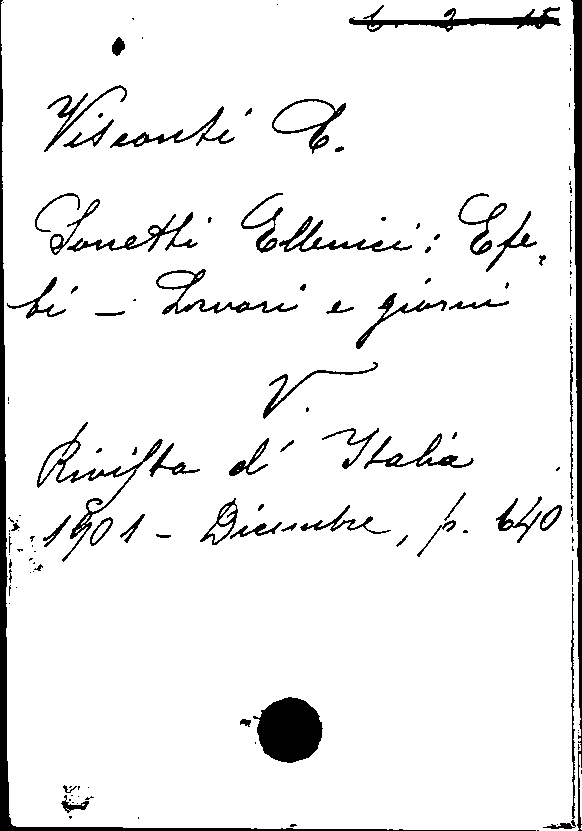 6. 2. 15
Visconti E.
Sonetti Ellenici: Efe,
bi – Lavori e giorni
V.
Rivista d' Italia
1901 – Dicembre, p. 640